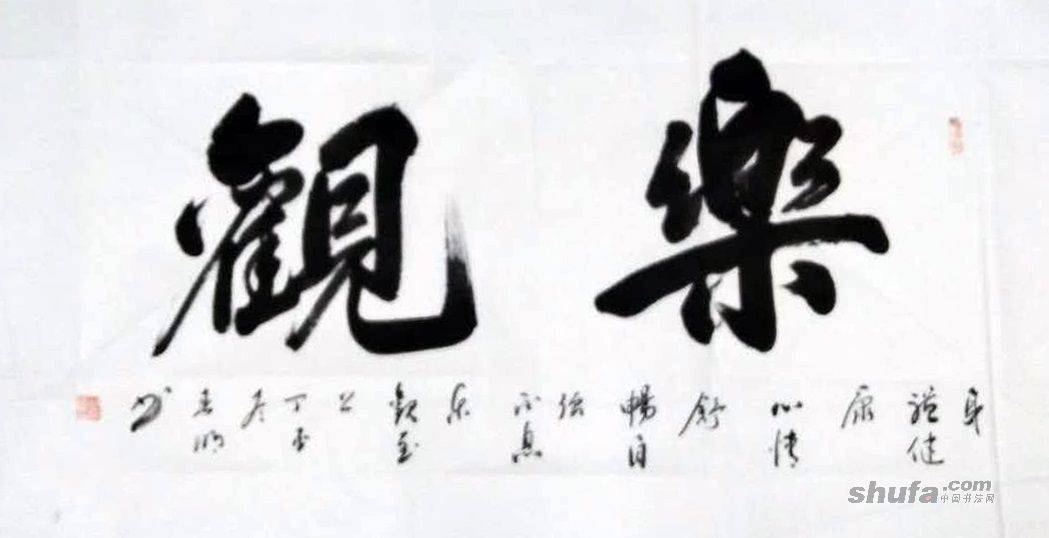 樂觀
身體健康
心情舒暢
自強不息
樂觀至上
丁酉冬
書
shufa.com
中国书法网